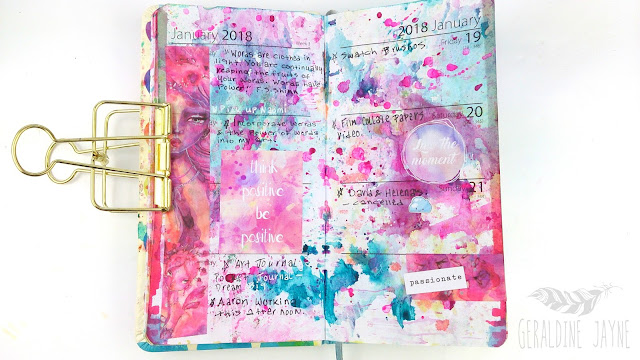 January 2018
Words are clothed in
light. You are continually
reaping the fruits of
your words. Words have
Power! F.S. Shinn
Incorporate Words
& the Power of Words
into my Art.
think
positive
be
positive
Art Journal
Journal
Dream
Aaron Working
this Afternoon.
2018 January
Friday 19
Swatch Brushos
20
Film Collage Papers
Video.
Live the
moment
Sunday 21
David & Helena's
- cancelled
passionate
GERALDINE JAYNE